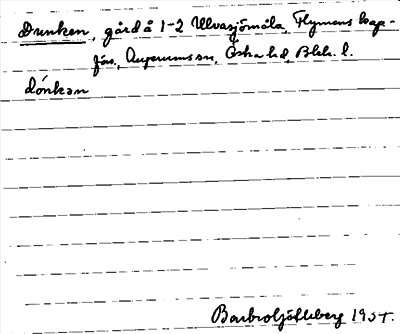 Drunken, gård å 1-2 Ulvasjömåla, Flymens kap-
förs., Augerums sn, Östra hd, Blek. l.
dónkən
Barbro Söderberg 1954.